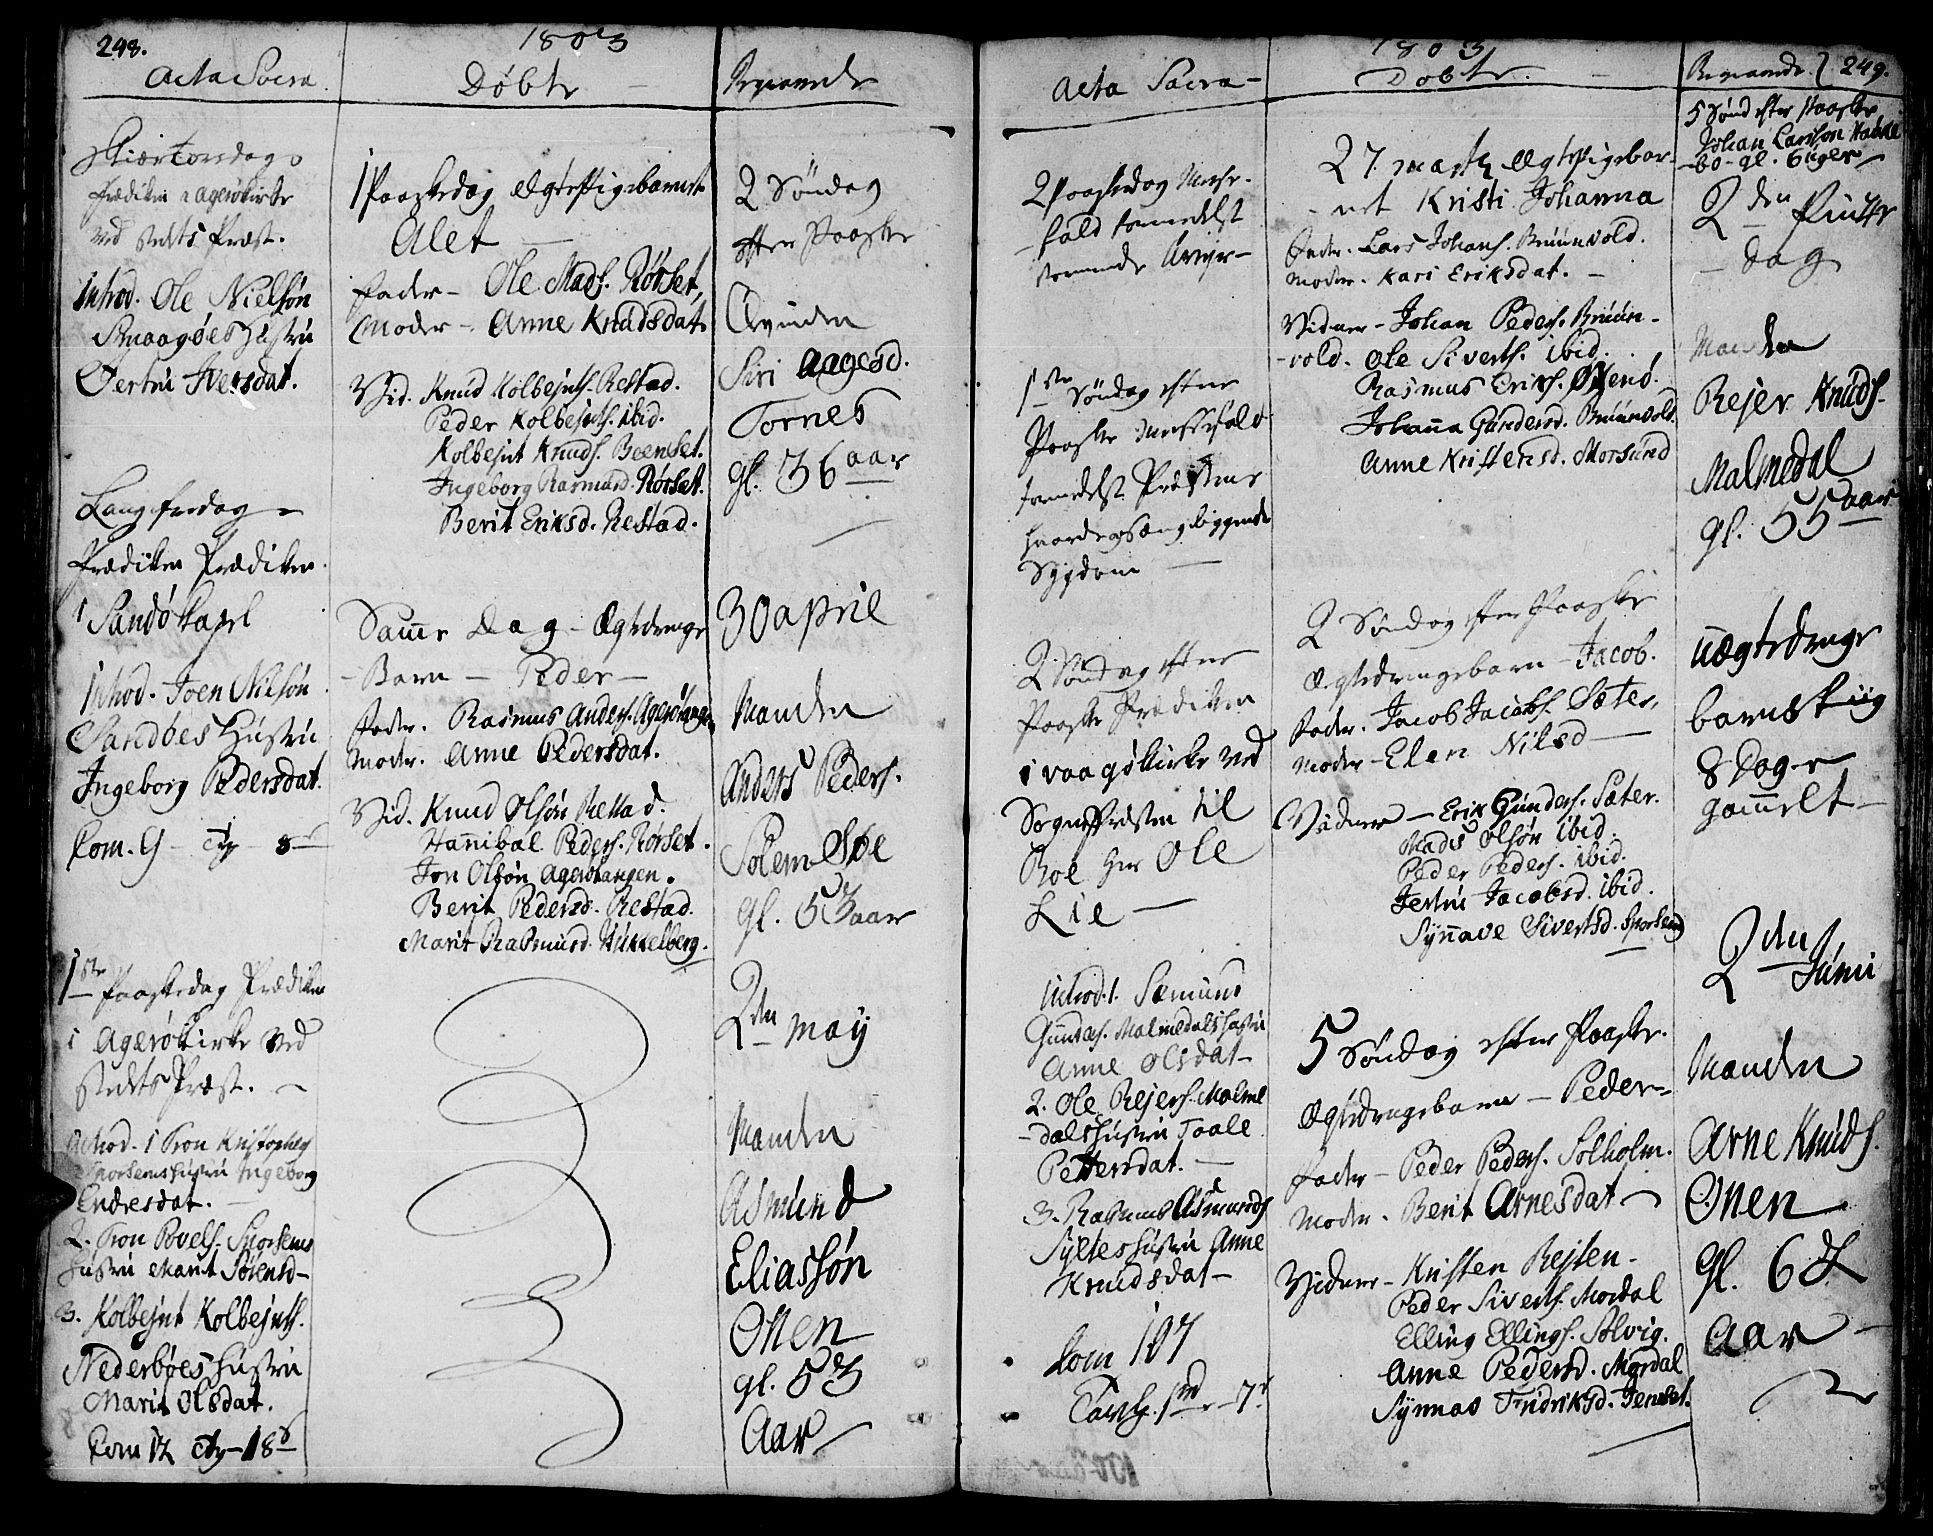 248.
1803
Acta Sacra.
Døbte
Begravede
Skiærtorsdag
Prædiken i Agerøkirke
ved stedets Præst.
Introd. Ole Nielsøn
Smaagøes Hustru
Giertru Iversdat.
Langfredag
Prædiken Prædiken
i Sandø Capel
Introd. Joen Nilsøn
Sandøes Hustru
Ingeborg Pedersdat.
Com. 9
1ste Paaskedag Prædiken
i Agerøkirke ved
stedets Præst.
Introd. 1 Tron Kristophers
Sporsems Hustru Ingeborg
Endresdat.
2. Tron Povels. Sporsems
Hustru Marit Sörensd.
3. Kolbejnt Kolbejnts.
Nederbøes Hustru
Marit Olsdat.
Com 12
1 Paaskedag Ægtepigebarnet
Alet
Fader - Ole Mads. Rørset,
Moder - Anne Knudsdat.
Vid. Knud Kolbejnts. Restad.
Peder Kolbejnts. ibid.
Kolbejnt Knuds. Boenset.
Ingeborg Rasmusd. Rørset.
Berit Eriksd. Restad.
Samme Dag - Ægtedrenge
Barn - Peder -
Fader. Rasmus Anders. Agerøtangen
Moder. Anne Pedersdat.
Vid. Knud Olsøn Restad.
Hannibal Peders. Rørset.
Jon Olsøn Agerøtangen.
Berit Pedersd. Restad.
Marit Rasmusd. Hukkelberg.
2 Søndag
efter Paaske
Qvinden
Siri Aagesd.
Tornes
gl. 36 aar
30 april
Manden
Anders Peders.
Solemsøe
gl. 53 aar
2den may
Manden
Asmund
Eliassøn
Onen
gl. 53
Aar
1803
Acta Sacra -
Døbte.
Begravede 249.
2 Paaskedag Messe-
fald formedelst
Uveyr -
1ste Søndag efter
Paaske Messefald
formedelst Præstens
Sygdom
2 Søndag efter
Paaske Prædiken
i Vaagøkirke ved
Sognepræsten til
Boe Her Ole
Lie -
Introd. 1. Sæmund
Gunders. Malmedals Hustru
Anne Olsdat -
2. Ole Rejers. Malme
-dals Hustru Taale
Pettersdat. -
3. Rasmus Asmunds
Syltes Hustru Anne
Knudsdat -
Com 107
27. Martz Ægtepigebar-
net Kristi Johanna
Fader. Lars Johans. Bruunvold.
Moder. Kari Eriksdat. -
Vidner - Johan Peders. Bruun-
-vold. Ole Siverts. ibid.
Rasmus Eriks.
Johanna Gundersd. Bruunvold.
Anne Kristensd. Morsund
2 Søndag efter Paaske
Ægtedrengebarn - Jacob.
Fader. Jacob Jacobs. Sæter,
Moder - Elen Nilsd -
Vidner - Erik Gunders. Sæter.
Mads Olsøn ibid.
Peder Peders. ibid.
Jertru Jacobsd. ibid.
Synnave Sivertsd. Sporsem
5 Søndag efter Paaske.
Ægtedrengebarn - Peder -
Fader - Peder Peders. Solholm.
Moder. Berit Arnesdat -
Vidner - Kristen Rejten -
Peder Siverts. Mordal
Elling Ellings. Solvig.
Anne Pedersd. Mordal
Synnav Fridriksd. Jenset.
5 Sønd efter Paaske
Johan Larssøn
gl. 6 uger
2den Pintse
- dag
Manden
Rejer Knuds.
Malmedal
gl. 55 aar
uægtedrenge
barn
8 Dage
gammelt -
2den
Junii
Manden
Arne Knuds.
Onen
Gl.
Aar -